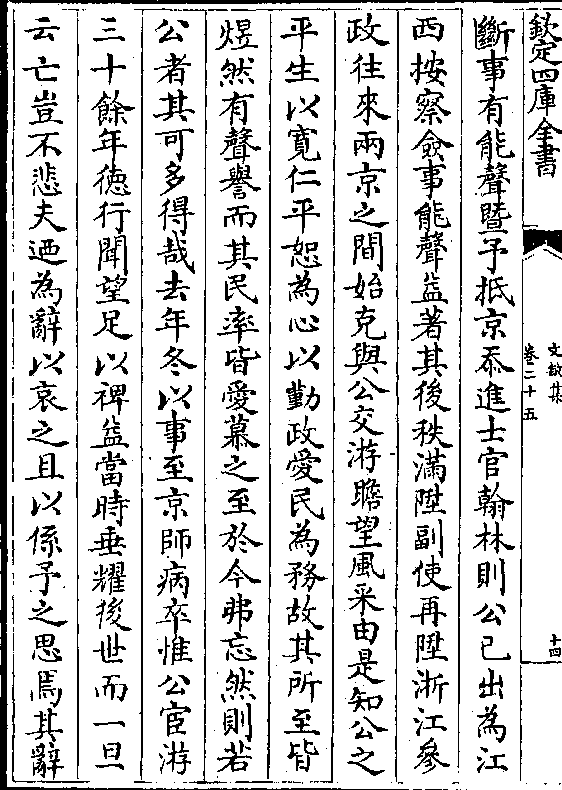 欽定四庫全書
文敏集
卷二十五
十四
斷事有能聲暨予抵京忝進士官翰林則公已出為江
西按察僉事能聲益著其後秩滿陞副使再陞浙江參
政往來兩京之間始克與公交游瞻望風采由是知公之
平生以寬仁平恕為心以勤政愛民為務故其所至皆
煜然有聲譽而其民率皆愛慕之至於今弗忘然則若
公者其可多得哉去年冬以事至京師病卒惟公宦游
三十餘年徳行聞望足以裨益當時垂耀後世而一旦
云亡豈不悲夫廼為辭以哀之且以係予之思焉其辭